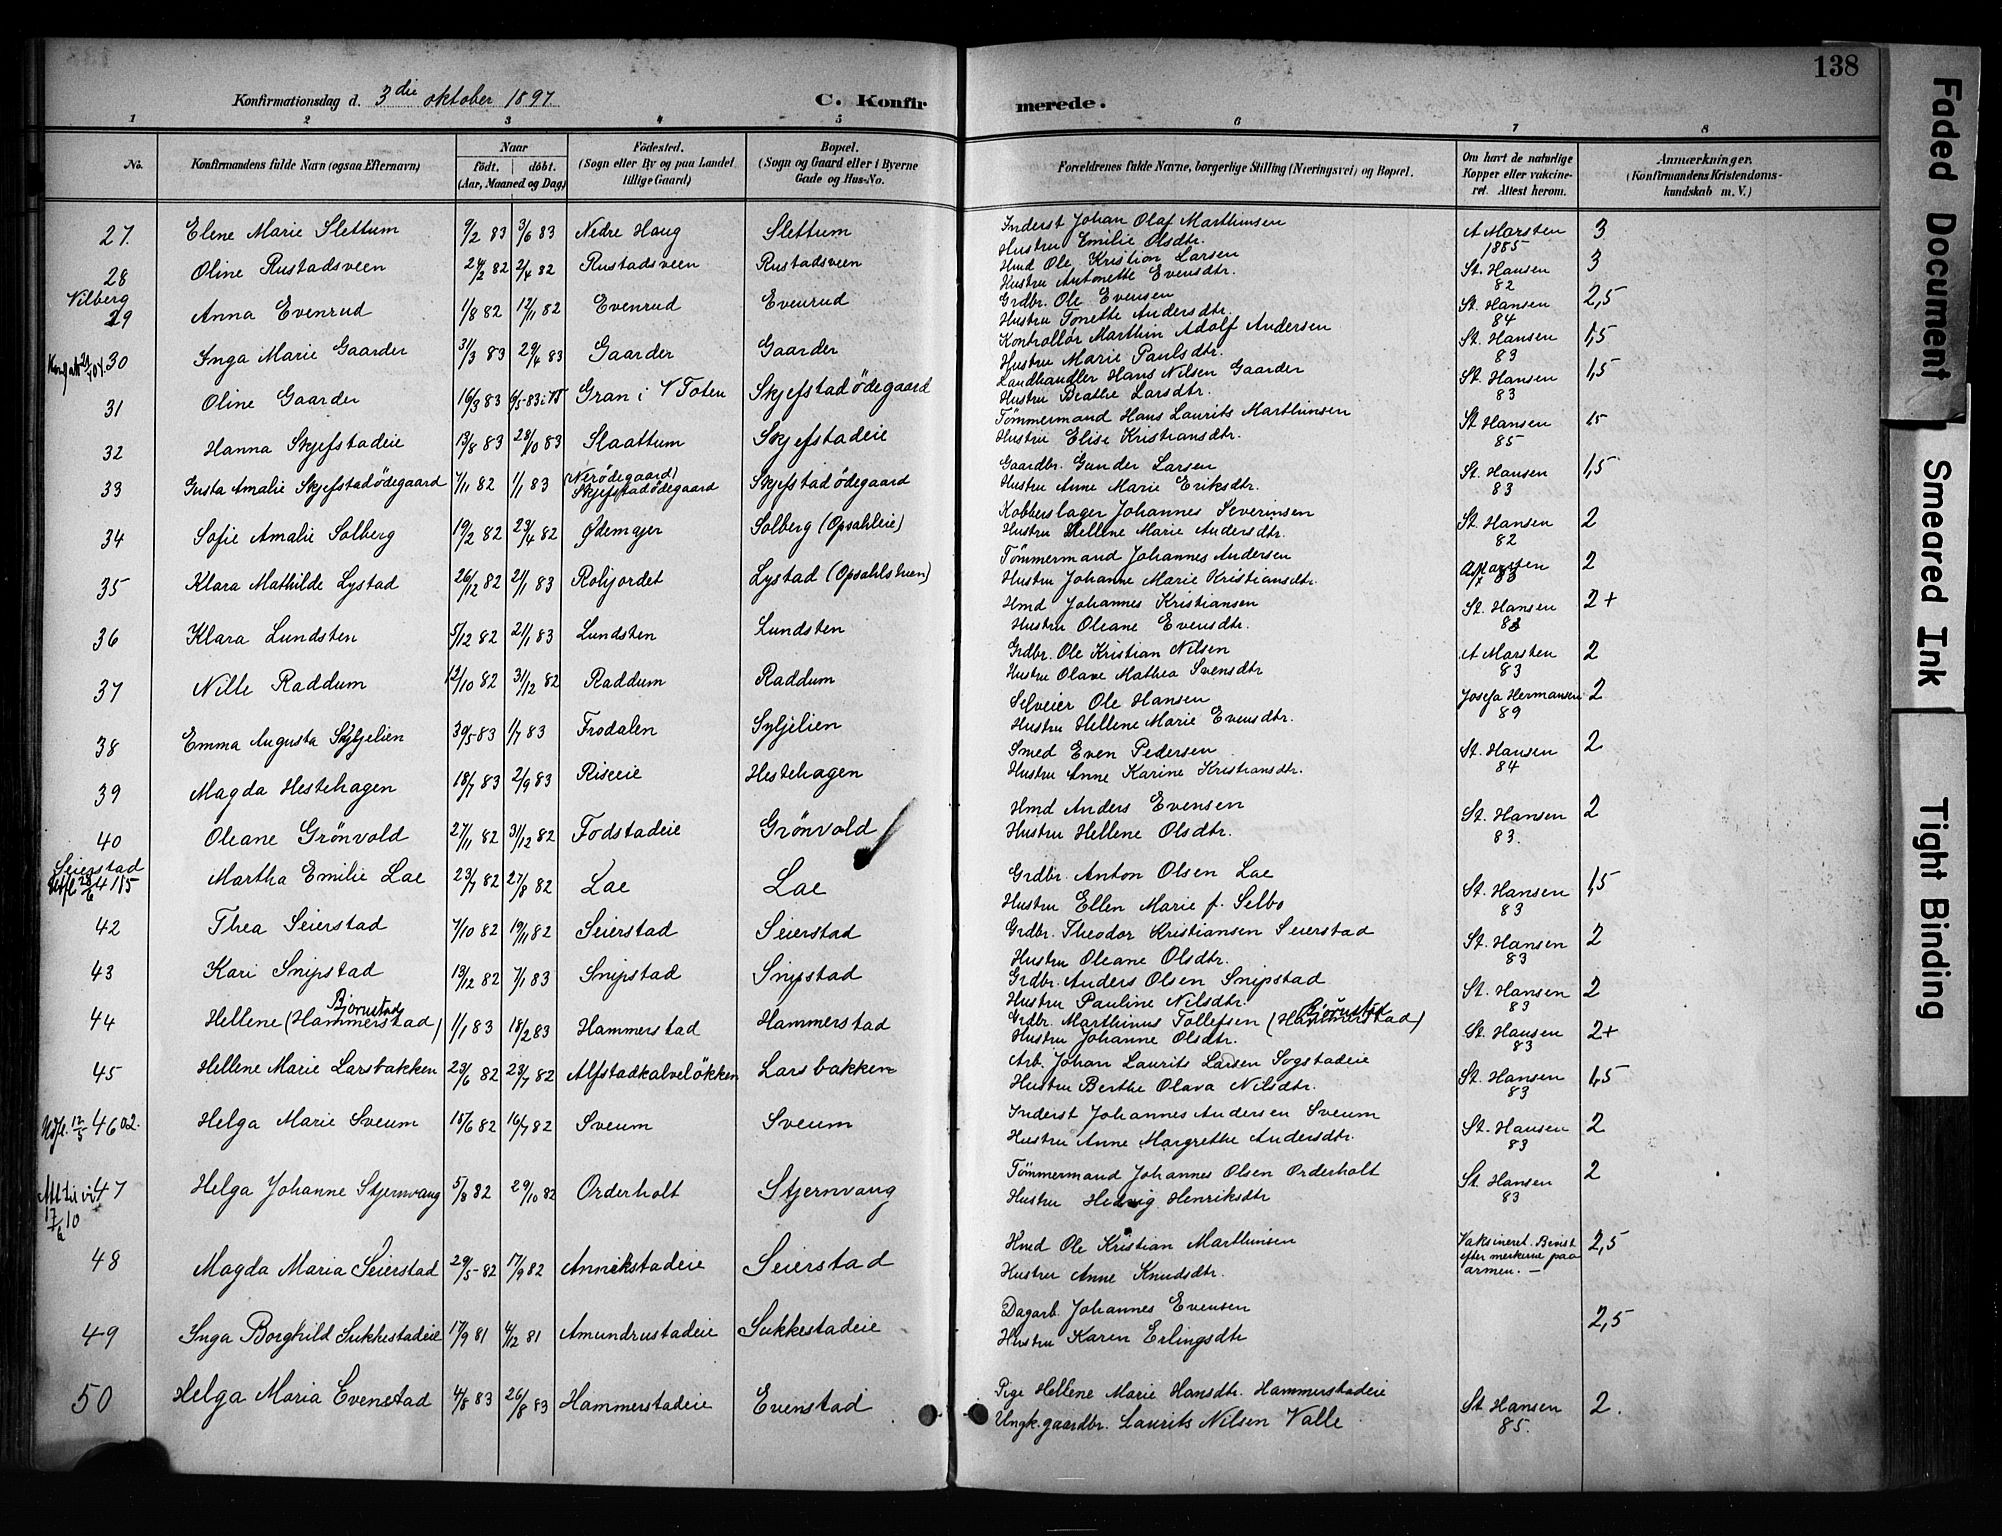 Konfirmationsdag d. 3die oktober 1897
C. Konfirmerede.
138
1 2 3 4 5 6 7 8
No.
Konfirmandens fulde Navn (ogsaa Efternavn)
Naar
født. døbt.
(Aar, Maaned og Dag)
Fødested.
(Sogn eller By og paa Landet tillige Gaard)
Bopæl.
(Sogn og Gaard eller i Byerne Gade og Hus-No.
Forældrenes fulde Navne, borgerlige Stilling (Næringsvei) og Bopæl.
Om havt de naturlige Kopper eller vakcineret. Attest herom.
Anmærkninger.
(Konfirmandens Kristendomskundskab m. V.)
27. Elene Marie Slettum 9/2 83 3/6 83 Nedre Haug Slettum Inderst Johan Olaf Marthinsen A Marsten 3
Hustru Emilie Olsdtr. 1885
28 Oline Rustadsveen 24/2 82 2/4 82 Rustadsveen Rustadsveen Hmd Ole Kristian Larsen St. Hansen 3
Hustru Antonette Evensdtr. 82
Vilberg
29 Anna Evenrud 1/8 82 12/11 82 Evenrud Evenrud Grdbr. Ole Evensen St. Hansen 2,5
Hustru Tonette Andersdtr. 84
30 Inga Marie Gaarder 31/3 83 29/4 83 Gaarder Gaarder Kontrollør Marthin Adolf Andersen St. Hansen 1,5
Hustru Marie Paulsdtr. 83
31 Oline Gaarder 16/3 83 6/5 83 i VT Gran i V Toten Skjefstadødegaard Landhandler Hans Nilsen Gaarder St. Hansen 1,5
Hustru Beathe Larsdtr. 83
32 Hanna Skjefstadeie 13/8 83 28/10 83 Slaattum Skjefstadeie Tømmermand Hans Laurits Marthinsen St Hansen 1,5
Hustru Elise Kristiansdtr. 85
33 Gusta Amalie Skjefstadødegaard 7/11 82 1/1 83 (Nerødegaard) Skjefstadødegaard Skjefstadødegaard Gaardbr. Gunder Larsen St. Hansen 1,5
Hustru Anne Marie Eriksdtr. 83
34 Sofie Amalie Solberg 19/2 82 23/4 82 Ødemyer Solberg (Opsahleie) Kobberslager Johannes Severinsen St. Hansen 2
Hustru Hellene Marie Andersdtr. 82
35 Klara Mathilde Lystad 26/12 82 21/1 83 Rohjordet Lystad (Opsahlstuen) Tømmermand Johannes Andersen A Marsten 2
Hustru Johanne Marie Kristiansdtr. 83
36 Klara Lundsten 5/12 82 21/1 83 Lundsten Lundsten Hmd Johannes Kristiansen St. Hansen 2+
Hustru Oleane Evensdtr. 83
37 Nille Raddum 12/10 82 31/12 82 Raddum Raddum Grdbr. Ole Kristian Nilsen A Marsten 2
Hustru Olave Mathea Svensdtr 83
38 Emma Augusta Syljelien 30/5 83 1/7 83 Frodalen Syljelien Selveier Ole Hansen Josefa Hermansen 2
Hustru Hellene Marie Evensdtr. 89
39 Magda Hestehagen 18/7 83 2/9 83 Riseeie Hestehagen Smed Even Pedersen St. Hansen 2
Hustru Anne Karine Kristiansdtr. 84
40 Oleane Grønvold 27/11 82 31/12 82 Fodstadeie Grønvold Hmd Anders Evensen St. Hansen 2
Hustru Hellene Olsdtr. 83.
Seierstad
Utfl 28/6 15
41 Martha Emilie Lae 23/7 82 27/8 82 Lae Lae Grdbr. Anton Olsen Lae St. Hansen 1,5
Hustru Ellen Marie f. Selbo 83
42 Thea Seierstad 7/10 82 19/11 82 Seierstad Seierstad Grdbr. Theodor Kristiansen Seierstad St. Hansen 2
Hustru Oleane Olsdtr. 83
43 Kari Snipstad 13/12 82 7/1 83 Snipstad Snipstad Grdbr. Anders Olsen Snipstad St. Hansen 2
Hustru Pauline Nilsdtr. 83
44 Hellene (Hammerstad) Bjørnstad 1/1 83 18/2 83 Hammerstad Hammerstad Grdbr. Marthinus Tollefsen (Hammerstad) Bjørnstad St. Hansen 2+
Hustru Johanne Olsdtr. 83
45 Hellene Marie Larsbakken 23/6 82 23/7 82 Alfstadkalveløkken Larsbakken Arb. Johan Laurits Larsen Sogstadeie St. Hansen 1,5
Hustru Berthe Olava Nilsdtr. 83
Utfl. 12/5 02.
46 Helga Marie Sveum 15/6 82 16/7 82 Sveum Sveum Inderst Johannes Andersen Sveum St. Hansen 2
Hustru Anne Margrethe Andersdtr. 83
17/6 10
47 Helga Johanne Stjernvang 5/8 82 29/10 82 Orderholt Stjernvang Tømmermand Johannes Olsen Orderholt St. Hansen 2
Hustru Hedvig Henriksdtr 83
48 Magda Maria Seierstad 29/5 82 17/9 82 Annikstadeie Seierstad Hmd Ole Kristian Marthinsen Vaksineret. Bevist efter merkerne paa armen. — 2,5
Hustru Anne Knudsdtr.
49 Inga Borghild Sukkestadeie 17/9 81 4/12 81 Amundrustadeie Sukkestadeie Dagarb. Johannes Evensen 2,5
Hustru Karen Erlingsdtr
50 Helga Maria Evenstad 4/8 83 26/8 83 Hammerstadeie Evenstad Pige Hellene Marie Hansdtr. Hammerstadeie St Hansen 2.
Ungk. gaardbr. Laurits Nilsen Valle 85.
Faded Document
Smeared Ink
Tight Binding